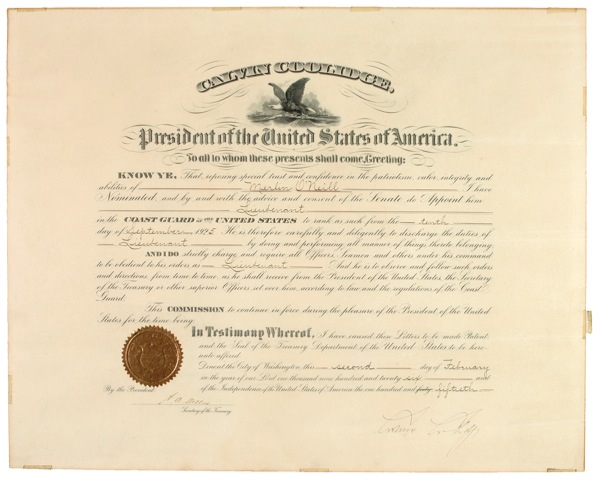 CALVIN COOLIDGE,
President of the United States of America.
To all to whom these presents shall come, Greeting:
KNOW YE, That, reposing special trust and confidence in the patriotism, valor, integrity and
abilities of Merlin O'Neill I have
Nominated, and by and with the advice and consent of the Senate do Appoint him
Lieutenant
in the COAST GUARD of the UNITED STATES to rank as such from the tenth
day of September 1925. He is therefore carefully and diligently to discharge the duties of
Lieutenant by doing and performing all manner of things thereto belonging.
AND I DO strictly charge and require all Officers, Seamen and others under his command
to be obedient to his orders as Lieutenant. And he is to observe and follow such orders
and directions, from time to time, as he shall receive from the President of the United States, the Secretary
of the Treasury or other superior Officers set over him, according to law and the regulations of the Coast
Guard.
This COMMISSION to continue in force during the pleasure of the President of the United
States for the time being.
In Testimony Whereof, I have caused these Letters to be made Patent,
and the Seal of the Treasury Department of the United States to be here-
unto affixed.
Done at the City of Washington this second day of February
in the year of our Lord one thousand nine hundred and twenty six and
of the Independence of the United States of America the one hundred and forty fiftieth
By the President
Secretary of the Treasury.